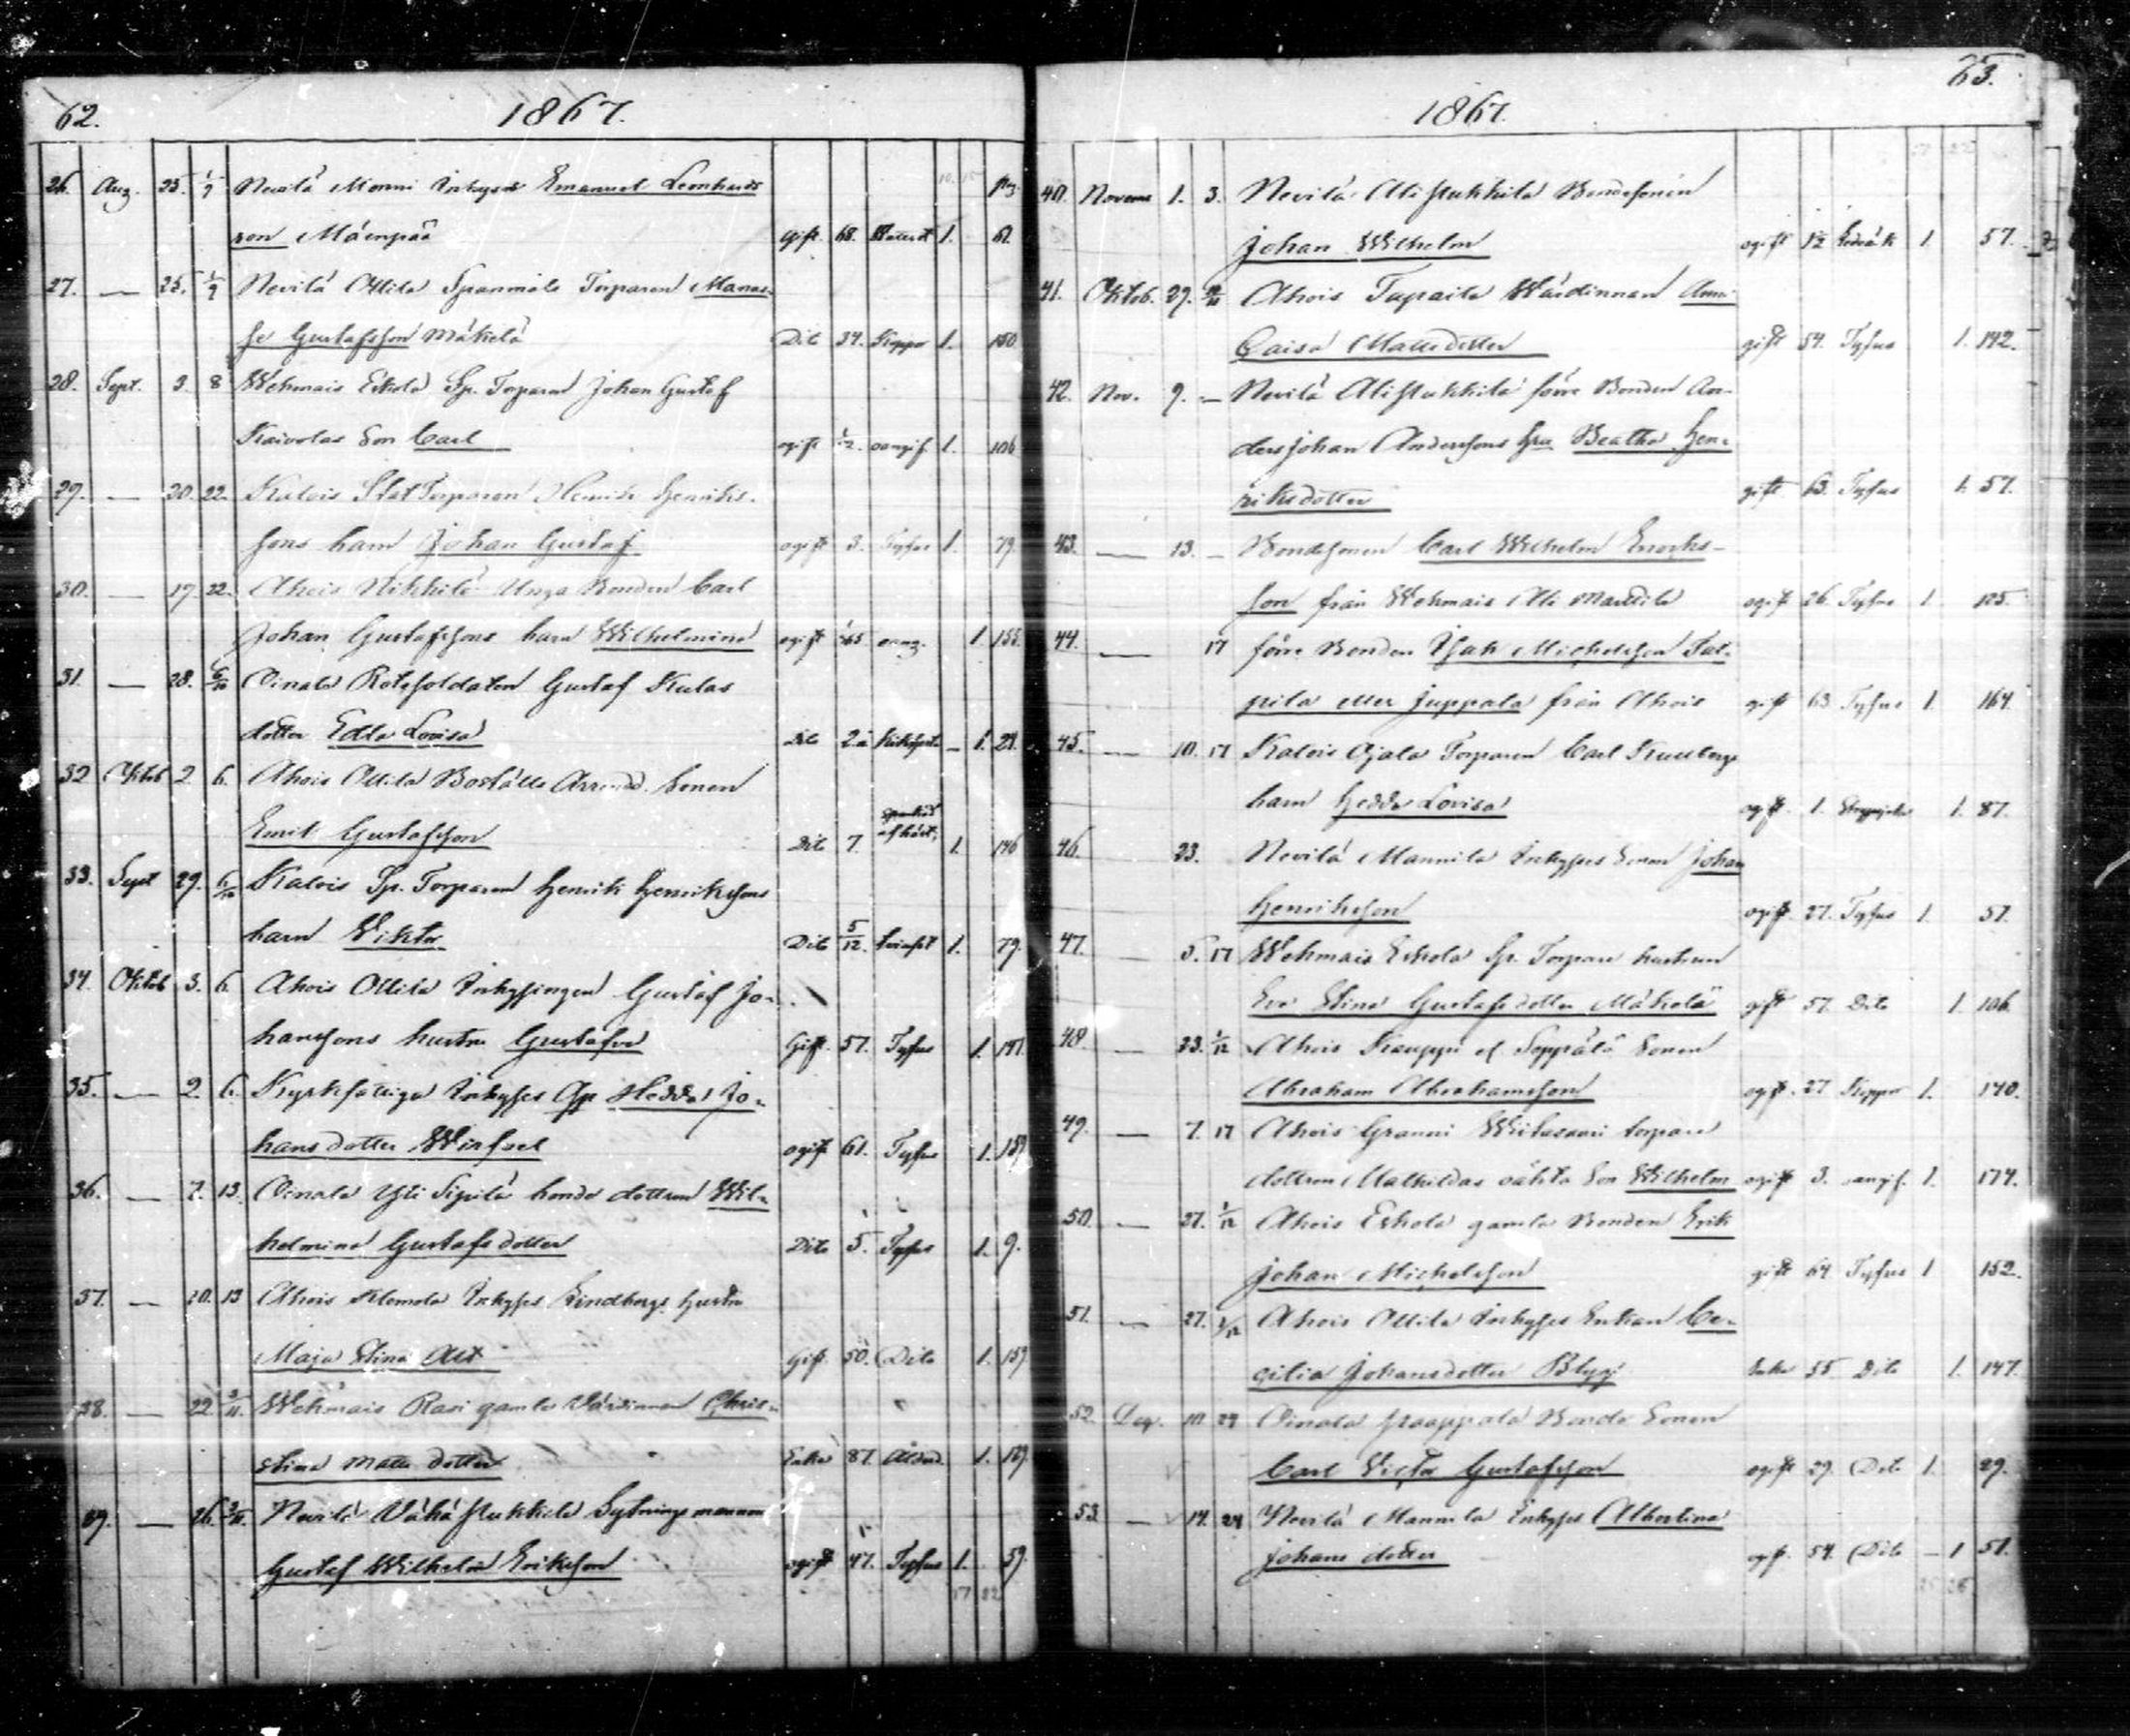 62.
1867.
26. Aug. 25. 1/9 Nevilä Monni Inhyses Emanuel Leonhards
son Mäenpää Gift. 68. 1. 61.
27. — 25. 1/9 Nevilä Ollila Spanmåls Torparen Manas-
se Gustafsson Mäkelä Dito 34. Koppor 1. 150
28. Sept. 3. 8 Wehmais Eskola Sp. Torparen Johan Gustaf
Koivolas Son Carl ogift 1/2. oangif. 1. 106
29. — 20. 22. Kalois Stat Torparen Henrik Henriks-
sons barn Johan Gustaf ogift 3. Tyfus 1. 79.
30. — 17 22. Ahois Nikkilä Unga Bonden Carl
Johan Gustafssons barn Wilhelmina ogift oang. 1. 155.
31. — 28. 6/10 Oinala Rotesoldaten Gustaf Kulas
dotter Edla Lovisa Dito 2 Kikhosta 1. 21.
32 Oktob 2. 6. Ahois Ollila Boställs Arrend. Sonen
Emil Gustafsson Dito 7. sparkad af häst. 1. 146
33. Sept 29. 6/10 Kalois Sp. Torparen Henrik Henrikssons
barn Viktor Dito 5/12. 1. 79.
34. Oktob 3. 6. Ahois Ollila Inhysingen Gustaf Jo-
hanssons hustru Gustafva Gift. 57. Tyfus 1. 147.
35. — 2. 6. Kyrkfattiga Inhyses Hedda Jo-
hansdotter Wirfvel ogift 61. Tyfus 1. 159
36. — 7. 13. Oinala Yli Sipilä bonde dottren Wil-
helmina Gustafsdotter Dito 5. Tyfus 1. 9.
37. — 10. 13 Ahois Klemola Inhyses Lindbergs hustru
Maja Stina Gift. 50. Dito 1. 159
38. — 22 3/11. Wehmais Rasi gamla Värdinnan Chris-
stina Matts dotter Enka 87. Ålderd. 1. 129.
39. — 26. 3/11. Nevilä Vähä Stukkila Sytningsmannen
Gustaf Wilhelm Eriksson ogift 47. Tyfus 1. 59.
63.
1867.
40. Novem 1. 3. Nevilä Ali Stukkila Bondesonen
Johan Wilhelm ogift 1/2 1. 57.
41. Oktob. 29. Ahois Tupaila Wärdinnan Anna
Caisa Mattsdotter gift 54. Tyfus 1. 142.
42. Nov. 9. — Nevilä Ali Stukkila förre Bonden An-
ders Johan Anderssons hru Beatha Hen-
riksdotter gift 63. Tyfus 1. 57.
43. — 13. — Bondesonen Carl Wilhelm Enochs-
son från Wehmais Ali Marttila ogift 26. Tyfus 1. 125.
44. — 17 förre Bonden Isak Michelsson Tal-
pila eller Juppala från Ahois gift 63. Tyfus 1. 164.
45. — 10. 17 Kalois Ojala Torparen Carl Kullbergs
barn Hedda Lovisa ogift. 1. 1. 87.
46. 23. Nevilä Mannila Inhyses Sonen Johan
Henriksson ogift. 27. Tyfus 1. 51.
47. — 5. 17 Wehmais Eskola Sp. Torpare hustrun
Eva Stina Gustafsdotter Mäkelä gift 57. Dito 1. 106.
48. — 23. 1/12 Ahois Kauppi el. Seppälä Sonen
Abraham Abrahamsson ogift. 27 Koppor 1. 140.
49. — 7. 17 Ahois Granni Witasaari torpare
dottren Mathildas oäkta Son Wilhelm ogift 3. oangif. 1. 174.
50. — 27. 1/12 Ahois Eskola gamla Bonden Erik
Johan Michelsson gift 64 Tyfus 1 152.
51. — 27. 1/12 Ahois Ollila Inhyses Enkan Ce-
cilia Johansdotter Blyg Enka 55 Dito 1. 147.
52. Dec. 10 29 Oinala Bonde Sonen
Carl Victor Gustafsson ogift 29. Dito 1. 29.
53. — 14. 29 Nevilä Mannila Inhyses Albertina
Johans dotter ogift. 54. Dito — 1 51.